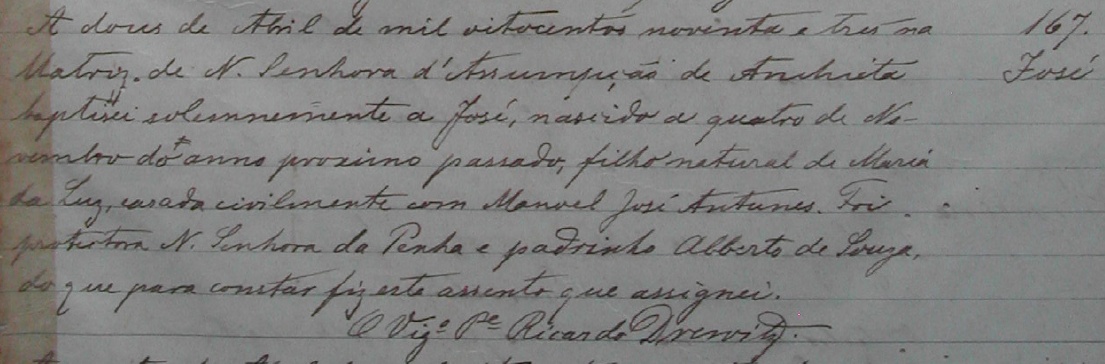 A dous de Abril de mil oitocentos noventa e tres na 167.
Matriz de N. Senhora d'Assumpção de Anchieta José
baptisei solemnemente a José, nascido a quatro de No-
vembro do anno proximo passado, filho natural de Maria
da Luz, casada civilmente com Manoel José Antunes. Foi
protectora N. Senhora da Penha e padrinho Alberto de Souza,
do que para constar fiz este assento que assignei.
O Vigº Pe Ricardo Drewitz.